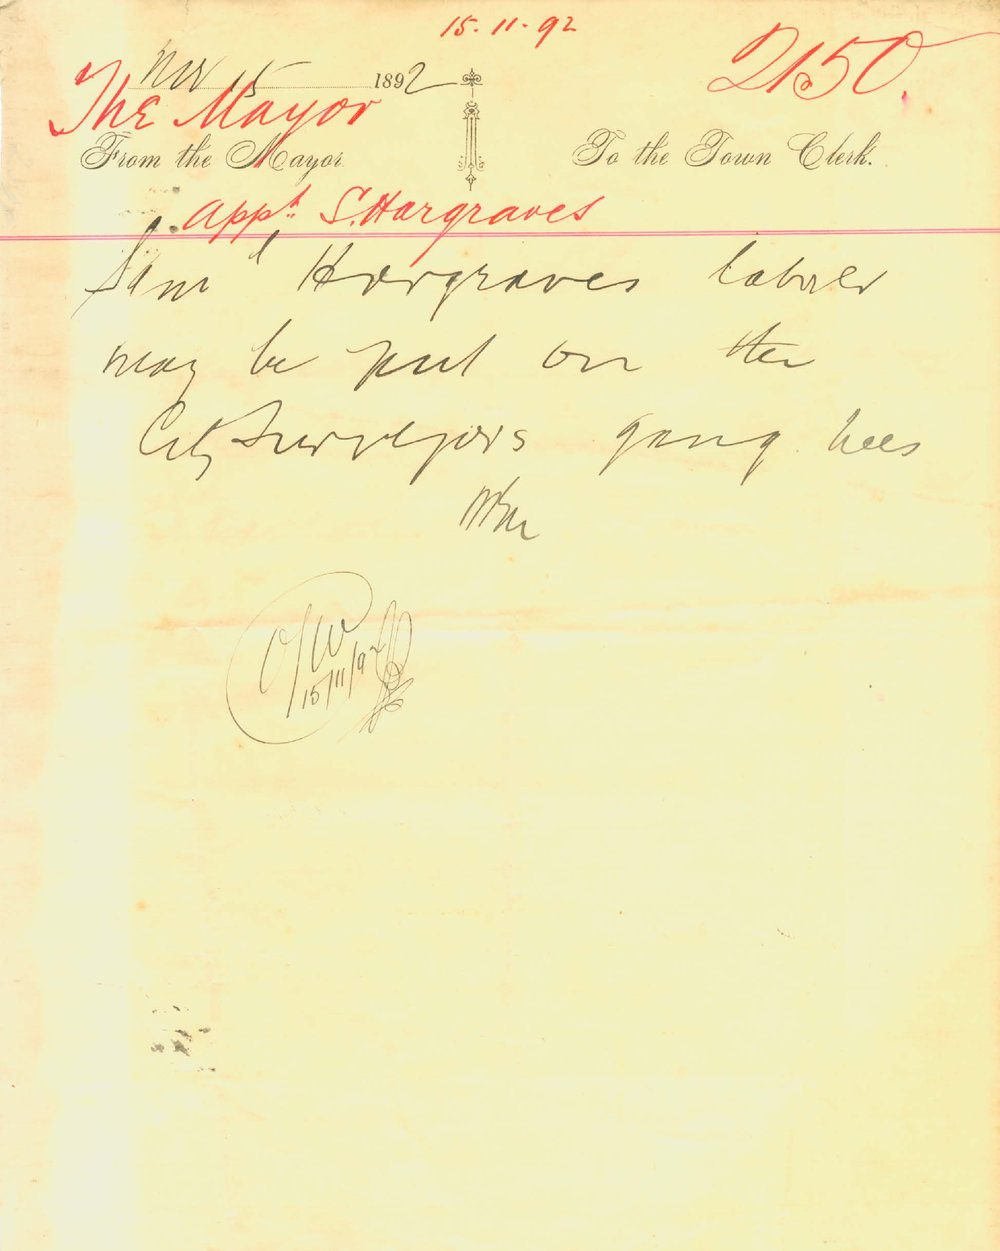 15.11.92
2150.
Nov 15 1892
The Mayor
From the Mayor. To the Town Clerk.
Appt. S. Hargraves
Saml Hargraves laborer
may be put on the
City Surveyors gang
15/11/92